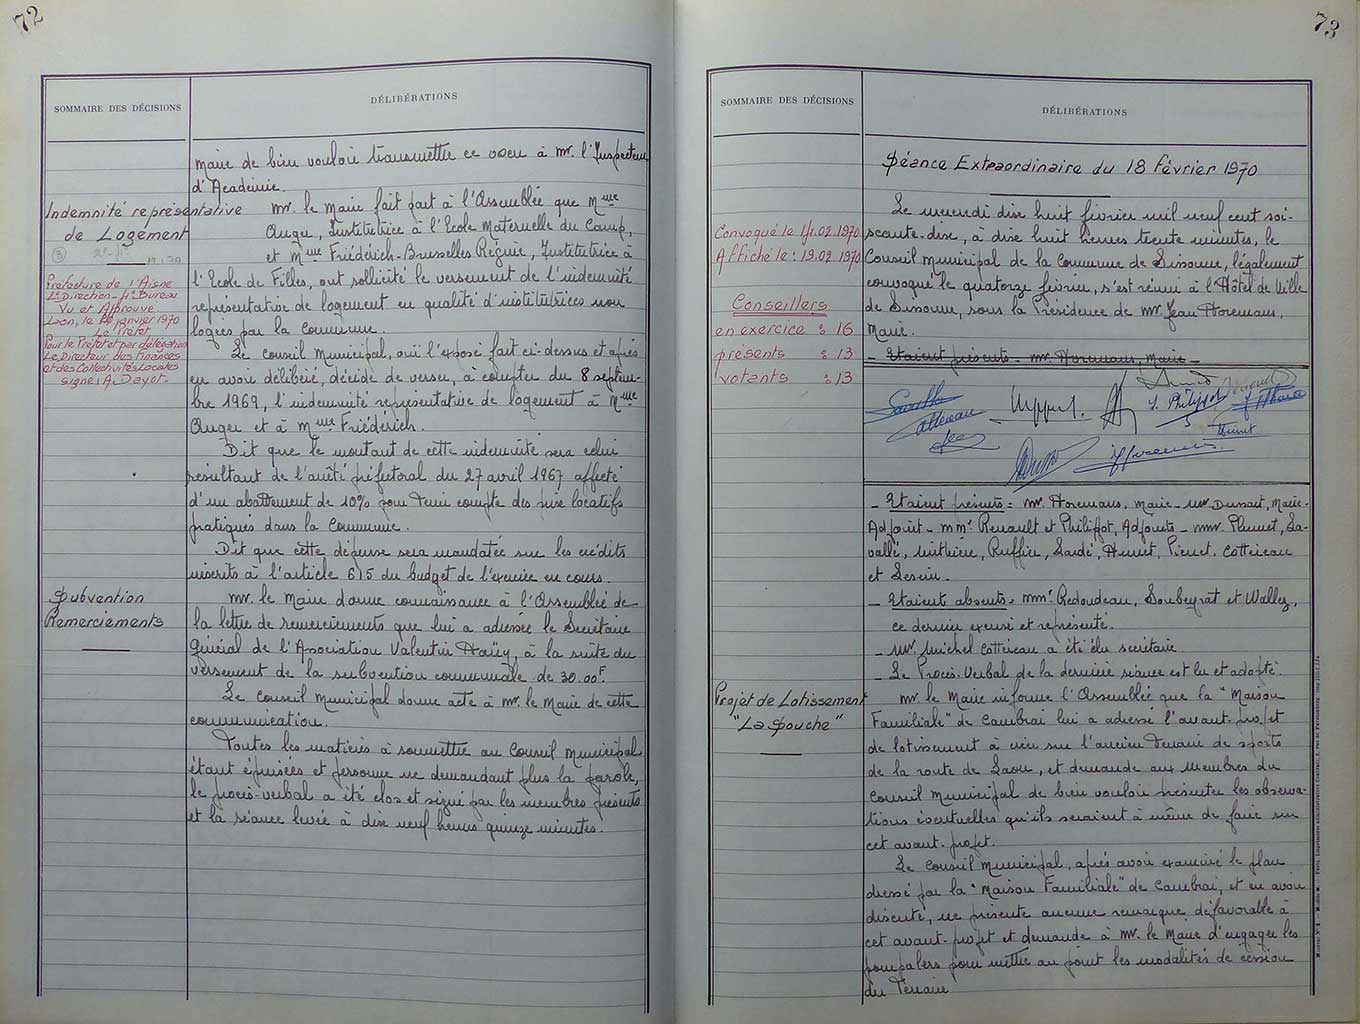 72
SOMMAIRE DES DÉCISIONS
DÉLIBÉRATIONS
Maire de bien vouloir transmettre ce voeu à Mr. l'Inspecteur
d'Académie.
Indemnité représentative
de Logement
Préfecture de l'Aisne
1e Direction - 4e Bureau
Vu et Approuvé
Laon, le janvier 1970
Le Préfet
Pour le Préfet et par délégation
Le Directeur des Finances
et des Collectivités Locales
signé: A. Dayot.
Mr. le Maire fait part à l'Assemblée que Mme
Auger, Institutrice à l'Ecole Maternelle du Camp,
et Mme Friédérich-Brusselles Régine, Institutrice à
l'Ecole de Filles, ont sollicité le versement de l'indemnité
représentative de logement en qualité d'institutrices non
logées par la Commune.
Le Conseil Municipal, ouï l'exposé fait ci-dessus et après
en avoir délibéré, décide de verser, à compter du 8 septem-
bre 1969, l'indemnité représentative de logement à Mme
Auger et à Mme Friédérich.
Dit que le montant de cette indemnité sera celui
résultant de l'arrêté préfectoral du 27 avril 1967 affecté
d'un abattement de 10% pour tenir compte des prix locatifs
pratiqués dans la Commune.
Dit que cette dépense sera mandatée sur les crédits
inscrits à l'article 615 du budget de l'exercice en cours.
Subvention
Remerciements
Mr. le Maire donne connaissance à l'Assemblée de
la lettre de remerciements que lui a adressée le Secrétaire
Général de l'Association Valentin Haüy, à la suite du
versement de la subvention communale de 30.00F.
Le Conseil Municipal donne acte à Mr. le Maire de cette
communication.
Toutes les matières à soumettre au Conseil Municipal
étant épuisées et personne ne demandant plus la parole,
le procès-verbal a été clos et signé par les membres présents
et la séance levée à dix neuf heures quinze minutes.
73
SOMMAIRE DES DÉCISIONS
DÉLIBÉRATIONS
Séance Extraordinaire du 18 Février 1970
Convoqué le 14.02.1970
Affiché le: 19.02.1970
Conseillers
en exercice : 16
présents : 13
votants : 13
Le mercredi dix huit février mil neuf cent soi-
xante-dix, à dix huit heures trente minutes, le
Conseil Municipal de la Commune de Sissonne, légalement
convoqué le quatorze février, s'est réuni à l'Hôtel de Ville
de Sissonne, sous la Présidence de Mr. Jean Horemans,
Maire.
- Etaient présents - Mr. Horemans, Maire -
J. Philippot
- Etaient présents = Mr. Horemans, Maire - Mr Dussart, Maire-
Adjoint - MMs Renault et Philippot, Adjoints - MMr. Plumet, La-
vallé, Mithière, Ruffier, Lardé, Humet, Pienet, Cottereau
et Lesur.
- Etaient absents = MMs Redoudeau, Soubeyrat et Wallez,
ce dernier excusé et représenté.
- Mr. Michel Cottereau a été élu secrétaire
- Le Procès-Verbal de la dernière séance est lu et adopté.
Projet de Lotissement
"La Souche"
Mr. le Maire informe l'Assemblée que la "Maison
Familiale" de Cambrai lui a adressé l'avant-projet
de lotissement à créer sur l'ancien terrain de sports
de la route de Laon, et demande aux Membres du
Conseil Municipal de bien vouloir présenter les observa-
tions éventuelles qu'ils seraient à même de faire sur
cet avant-projet.
Le Conseil Municipal, après avoir examiné le plan
dressé par la "Maison Familiale" de Cambrai, et en avoir
discuté, ne présente aucune remarque défavorable à
cet avant-projet et demande à Mr. le Maire d'engager les
pourpalers pour mettre au point les modalités de cession
du Terrain